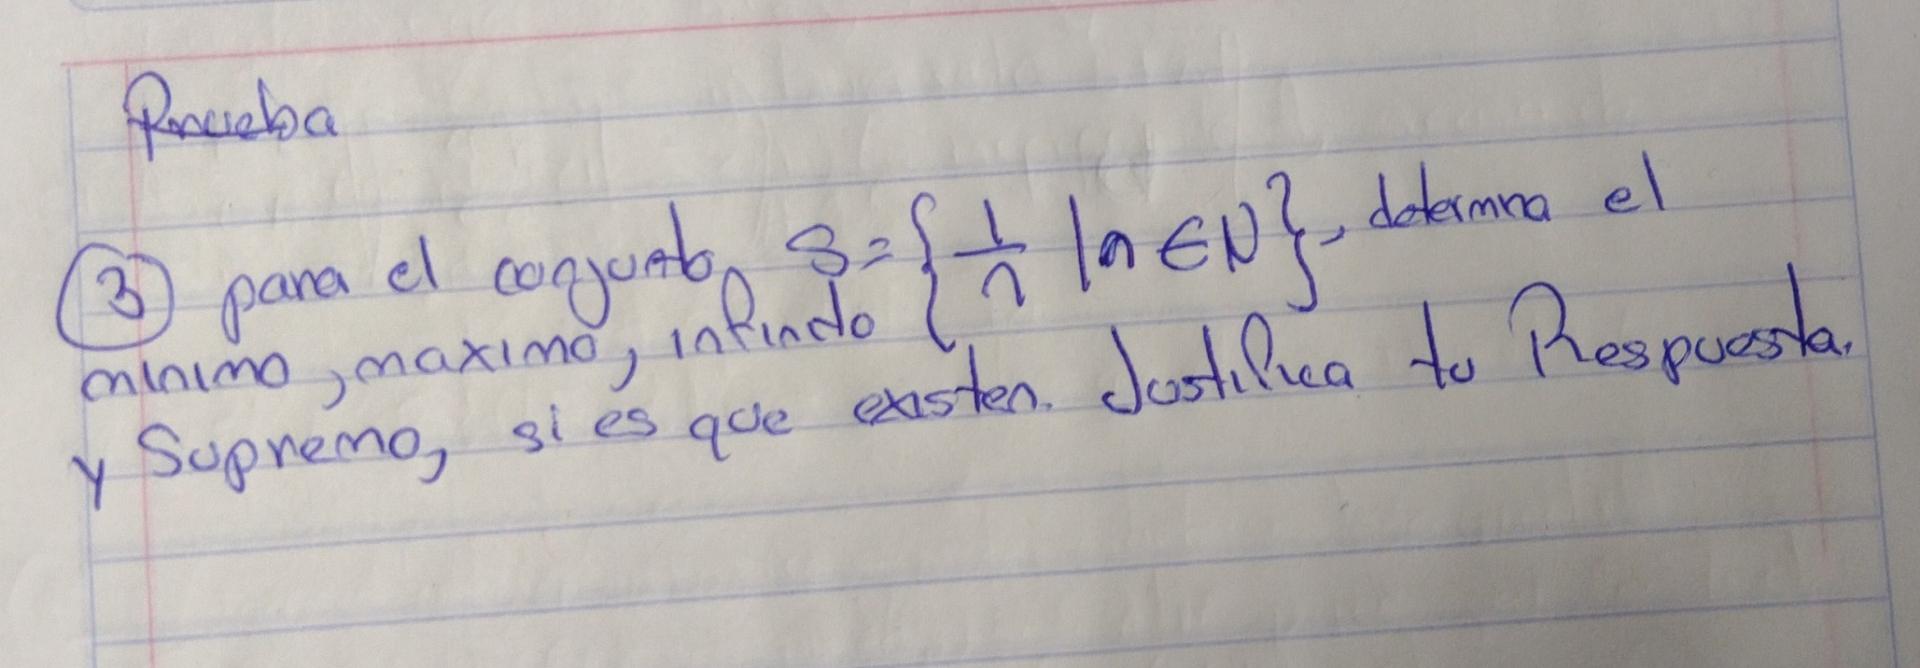 Prueba
③ para el conjunto S = { 1/n | n ∈ N }, determina el
minimo, maximo, infindo
y Supremo, si es que existen. Justifica tu Respuesta.